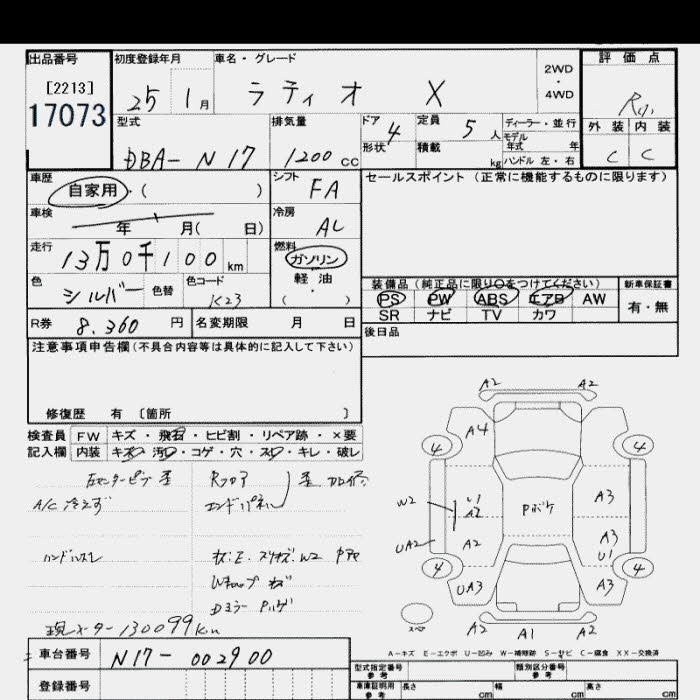 出品番号 初度登録年月 車名・グレード 評価点
[2213] 25 1月 ラティオ X 2WD・4WD
17073
型式 排気量 ドア 4 定員 5人 ディーラー・並行 外装 内装
DBA-N17 1200cc 形状 積載 kg モデル年式 年 C C
ハンドル 左・右
車歴 自家用・( ) シフト FA セールスポイント (正常に機能するものに限ります)
車検 年 月( 日) 冷房 AC
走行 13万0千100km 燃料 ガソリン 軽油・( )
色 シルバー 色替 色コード K23 装備品 (純正品に限り○をつけてください) 新車保証書
PS PW ABS エアB AW 有・無
SR ナビ TV カワ
R券 8.360円 名変期限 月 日 後日品
注意事項申告欄 (不具合内容等は具体的に記入して下さい)
修復歴 有 〔箇所 〕
検査員 FW キズ・飛石・ヒビ割・リペア跡・×要
記入欄 内装 キズ・汚れ・コゲ・穴・スレ・キレ・破レ
左センターピラー歪 Rフロア 歪
A/C冷えず エンドパネル
ハンドルスレ
W2
Dミラー
現メーター130099km
A2 A2
A4
4 4
W2 U1 A2 Pボケ A3
UA2 A2 A3 U1
4 4
UA3 A3
スペア A2 A1 A2
A-キズ E-エクボ U-凹み W-補修跡 S-サビ C-腐食 XX-交換済
車台番号 N17-002900 型式指定番号 参考 類別区分番号 参考
登録番号 車庫証明用 参考 長さ cm 幅 cm 高さ cm